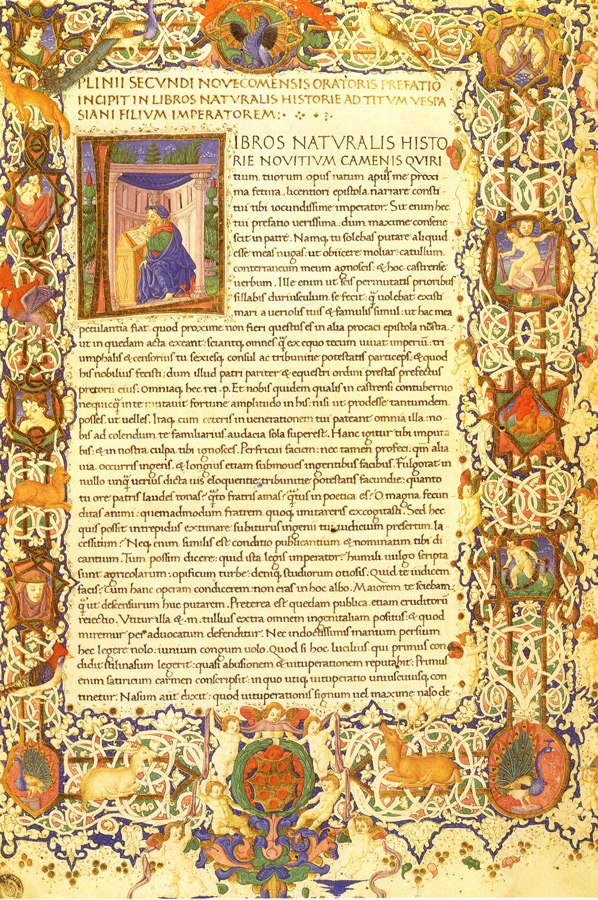 PLINII SECVNDI NOVECOMENSIS ORATORIS PREFATIO
INCIPIT IN LIBROS NATVRALIS HISTORIE AD TITVM VESPA
SIANI FILIVM IMPERATOREM:
LIBROS NATVRALIS HISTO
RIE NOVITIVM CAMENIS QVIRI
tium, tuorum opus natum apud me proxi-
ma fetura, licentiori epistola narrare consti-
tui tibi iocundissime imperator. Sit enim hec
tui prefatio uerissima: dum maxime consene
scit in patre. Namq; tu solebas putare aliquid
esse meas nugas: ut obiicere moliar catullum
conterraneum meum agnoscis: & hoc castrense
uerbum. Ille enim ut scis permutatis prioribus
sillabis duriusculum se fecit: q̃ uolebat existi
mari a ueriolis tuis & famulis simul: ut hac mea
petulantia fiat: quod proxime non fieri questus es in alia procaci epistola nostra:
ut in quedam acta exeant: sciantq; omnes q̃ ex equo tecum uiuat imperiũ: tri
umphalis & censorius tu sexiesq; consul ac tribunitie potestatis particeps: & quod
his nobilius fecisti: dum illud patri pariter & equestri ordini prestas prefectus
pretorii eius. Omniaq; hec rei .p. Et nobis quidem qualis in castrensi contubernio
nequicq̃ in te mutauit fortune amplitudo in his: nisi ut prodesse tantumdem
posses: ut uelles. Itaq; cum ceteris in uenerationem tui pateant omnia illa: no-
bis ad colendum te familiarius audacia sola superest. Hanc igitur tibi imputa
bis: & in nostra culpa tibi ignosces. Perfricui faciem: nec tamen profeci: qm alia
uia occurris ingens: & longius etiam submoues ingentibus facibus. Fulgorat in
nullo unq̃ uerius dicta uis eloquentie: tribunitie potestatis facundie: quanto
tu ore patris laudes tonas: q̃to fratris amas: q̃tus in poetica es? O magna fecun
ditas animi: quemadmodum fratrem quoq; imitareris excogitasti. Sed hec
quis possit intrepidus extimare: subiturus ingenii tui iudicium presertim la-
cessitum? Neq; enim similis est conditio publicantium & nominatim tibi di
cantium. Tum possim dicere: quid ista legis imperator? humili uulgo scripta
sunt: agricolarum: opificum turbe: deniq; studiorum otiosis. Quid te iudicem
facis? Cum hanc operam condicerem non eras in hoc albo. Maiorem te sciebam
q̃ ut descensurum huc putarem. Preterea est quedam publica etiam eruditorũ
reiectio. Vtitur illa & .m. tullius extra omnem ingenii aliam positus: & quod
miremur per aduocatum defenditur. Nec indoctissimis manium persium
hec legere nolo: iunium congum uolo. Quod si hoc lucilius qui primus con
didit stili nasum legerit: quasi abusionem & uituperationem reputabit: Primus
enim satiricum carmen conscripsit: in quo utiq; uituperatio uniuscuiusq; con
tinetur. Nasum aut dixit: quod uituperationis signum uel maxime naso de